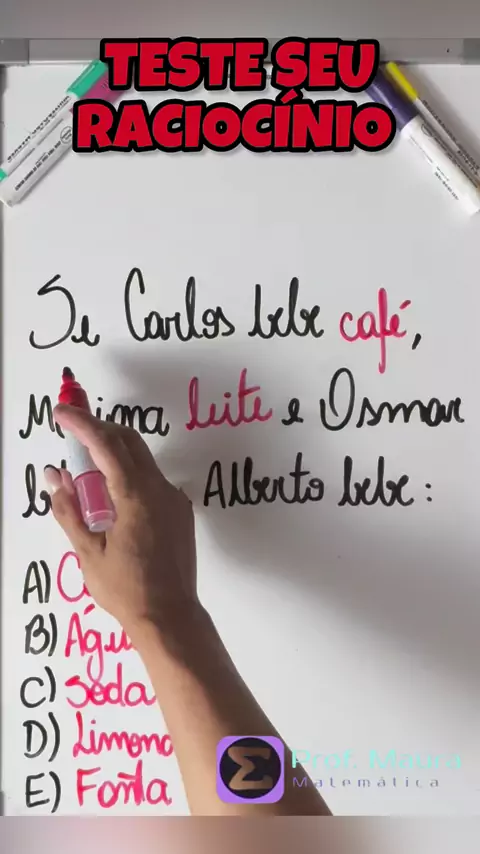 TESTE SEU
RACIOCÍNIO
Se Carlos bebe café,
leite e Osmar
Alberto bebe:
A)
B) Águ
C) Soda
D) Limona
E) Fonta
Prof. Maura
Matemática